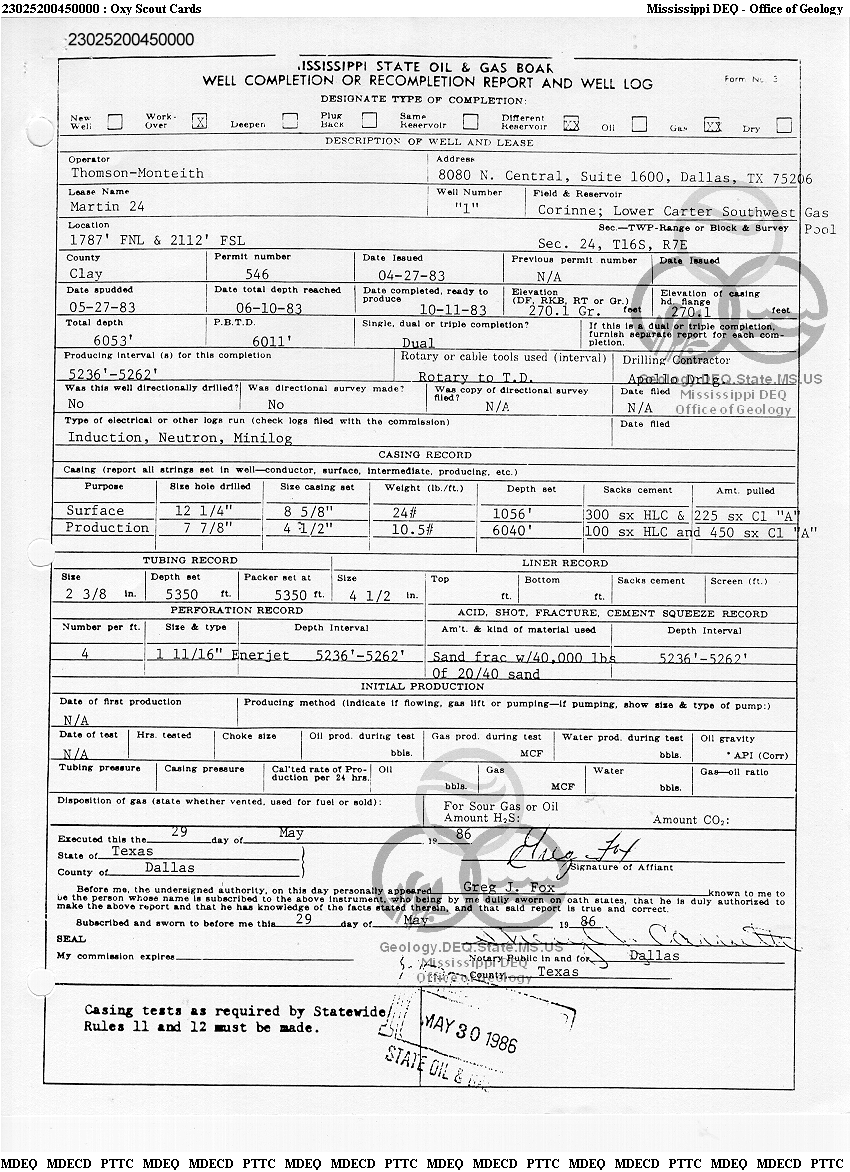 23025200450000 : Oxy Scout Cards Mississippi DEQ - Office of Geology
23025200450000
ISSISSIPPI STATE OIL & GAS BOAR
WELL COMPLETION OR RECOMPLETION REPORT AND WELL LOG Form No. 3
DESIGNATE TYPE OF COMPLETION:
New Well Work-Over X Deepen Plug Back Same Reservoir Different Reservoir XX Oil Gas XX Dry
DESCRIPTION OF WELL AND LEASE
Operator Address
Thomson-Monteith 8080 N. Central, Suite 1600, Dallas, TX 75206
Lease Name Well Number Field & Reservoir
Martin 24 "1" Corinne; Lower Carter Southwest Gas Pool
Location Sec.—TWP-Range or Block & Survey
1787' FNL & 2112' FSL Sec. 24, T16S, R7E
County Permit number Date Issued Previous permit number Date Issued
Clay 546 04-27-83 N/A
Date spudded Date total depth reached Date completed, ready to produce Elevation (DF, RKB, RT or Gr.) Elevation of casing hd. flange
05-27-83 06-10-83 10-11-83 270.1 Gr. feet 270.1 feet
Total depth P.B.T.D. Single, dual or triple completion? If this is a dual or triple completion, furnish separate report for each completion.
6053' 6011' Dual
Producing interval (s) for this completion Rotary or cable tools used (interval) Drilling Contractor
5236'-5262' Rotary to T.D. Apollo Drlg.
Geology.DEQ.State.MS.US
Mississippi DEQ
Office of Geology
Was this well directionally drilled? Was directional survey made? Was copy of directional survey filed? Date filed
No No N/A N/A
Type of electrical or other logs run (check logs filed with the commission) Date filed
Induction, Neutron, Minilog
CASING RECORD
Casing (report all strings set in well—conductor, surface, intermediate, producing, etc.)
Purpose Size hole drilled Size casing set Weight (lb./ft.) Depth set Sacks cement Amt. pulled
Surface 12 1/4" 8 5/8" 24# 1056' 300 sx HLC & 225 sx Cl "A"
Production 7 7/8" 4 1/2" 10.5# 6040' 100 sx HLC and 450 sx Cl "A"
TUBING RECORD LINER RECORD
Size Depth set Packer set at Size Top Bottom Sacks cement Screen (ft.)
2 3/8 in. 5350 ft. 5350 ft. 4 1/2 in. ft. ft.
PERFORATION RECORD ACID, SHOT, FRACTURE, CEMENT SQUEEZE RECORD
Number per ft. Size & type Depth Interval Am't. & kind of material used Depth Interval
4 1 11/16" Enerjet 5236'-5262' Sand frac w/40,000 lbs 5236'-5262'
Of 20/40 sand
INITIAL PRODUCTION
Date of first production Producing method (indicate if flowing, gas lift or pumping—if pumping, show size & type of pump:)
N/A
Date of test Hrs. tested Choke size Oil prod. during test Gas prod. during test Water prod. during test Oil gravity
N/A bbls. MCF bbls. ° API (Corr)
Tubing pressure Casing pressure Cal'ted rate of Production per 24 hrs. Oil Gas Water Gas—oil ratio
bbls. MCF bbls.
Disposition of gas (state whether vented, used for fuel or sold): For Sour Gas or Oil
Amount H2S: Amount CO2:
Executed this the 29 day of May 19 86
Greg Fox
State of Texas Signature of Affiant
County of Dallas
Before me, the undersigned authority, on this day personally appeared Greg J. Fox known to me to
be the person whose name is subscribed to the above instrument, who being by me duly sworn on oath states, that he is duly authorized to
make the above report and that he has knowledge of the facts stated therein, and that said report is true and correct.
Subscribed and sworn to before me this 29 day of May 19 86
SEAL
Geology.DEQ.State.MS.US
My commission expires Notary Public in and for Dallas
Mississippi DEQ
County, Texas
Office of Geology
Casing tests as required by Statewide
Rules 11 and 12 must be made.
MAY 30 1986
STATE OIL &
MDEQ MDECD PTTC MDEQ MDECD PTTC MDEQ MDECD PTTC MDEQ MDECD PTTC MDEQ MDECD PTTC MDEQ MDECD PTTC